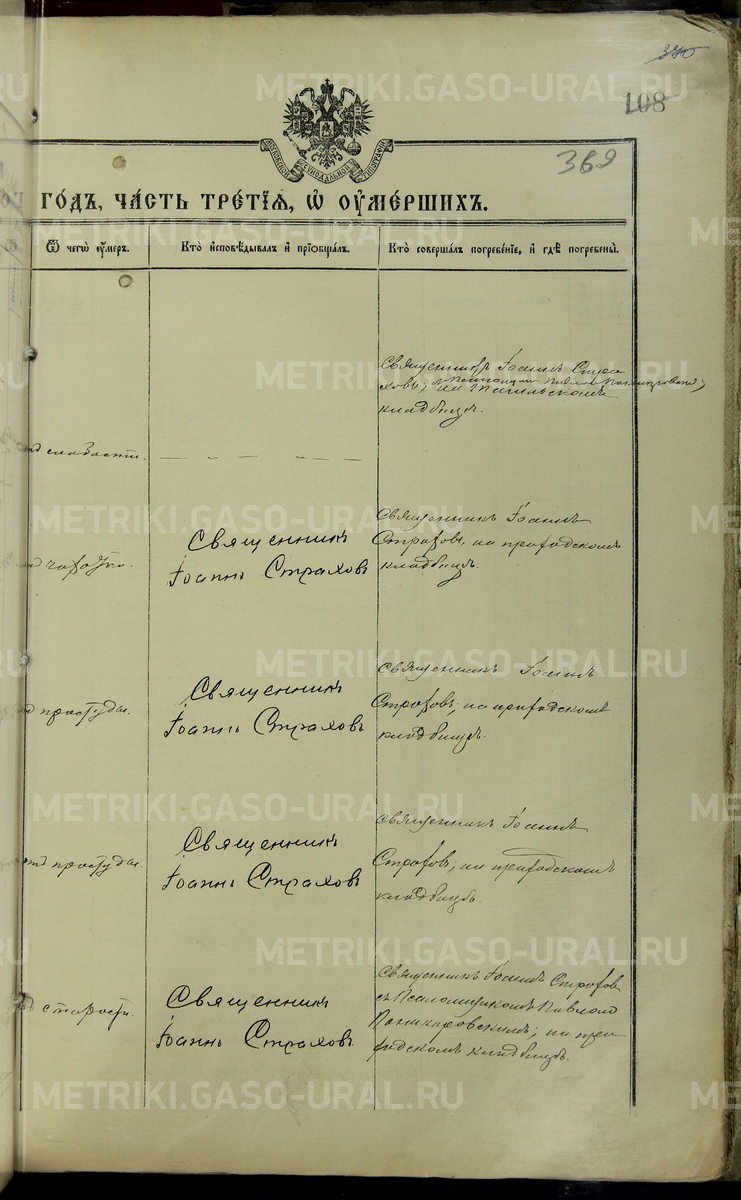 370
108
369
МОСКОВСКОЙ СѴНОДАЛЬНОЙ ТИПОГРАФІИ
ГО́ДЪ, ЧА́СТЬ ТРЕ́ТІѦ, Ѡ҆ ОУ҆МЕ́РШИХЪ.
Ѿ чегѡ̀ ᲂу҆́меръ.
Кто̀ и҆сповѣ́дывалъ и҆ прїѡбща́лъ.
Кто̀ соверша́лъ погребе́нїе, и҆ гдѣ̀ погребены̀.
слабости.
Священникъ Іоаннъ Стра
ховъ, на Тагильскомъ
кладбищѣ.
Священникъ
Іоаннъ Страховъ
Священникъ Іоаннъ
Страховъ, на приходскомъ
кладбищѣ.
простуды.
Священникъ
Іоаннъ Страховъ
Священникъ Іоаннъ
Страховъ; на приходскомъ
кладбищѣ.
отъ простуды.
Священникъ
Іоаннъ Страховъ
Священникъ Іоаннъ
Страховъ; на приходскомъ
кладбищѣ.
старости.
Священникъ
Іоаннъ Страховъ
Священникъ Іоаннъ Страховъ
съ Псаломщикомъ Павломъ
на при
ходскомъ кладбищѣ.
METRIKI.GASO-URAL.RU